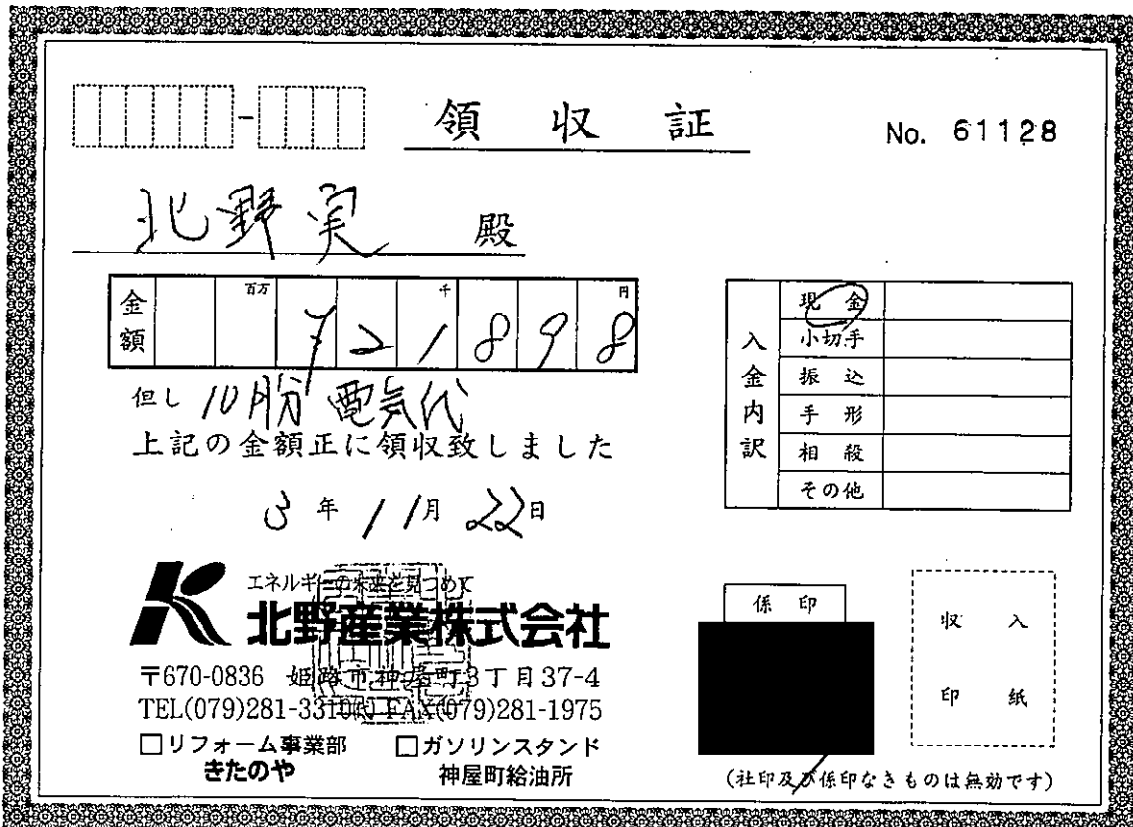 領収証
No. 61128
北野実 殿
金額 百万 千 円
721898
但し 10月分 電気代
上記の金額正に領収致しました
3年11月22日
入金内訳
現金
小切手
振込
手形
相殺
その他
エネルギーの未来を見つめて
北野産業株式会社
〒670-0836 姫路市神屋町3丁目37-4
TEL(079)281-3310㈹ FAX(079)281-1975
□リフォーム事業部 □ガソリンスタンド
きたのや 神屋町給油所
係印
収入
印紙
(社印及び係印なきものは無効です)